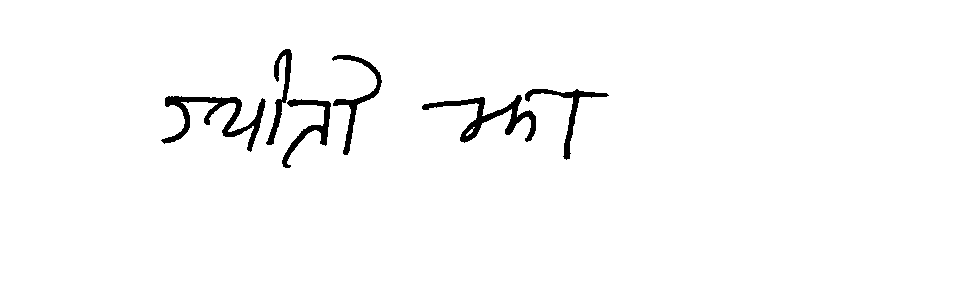 ज्योती झा